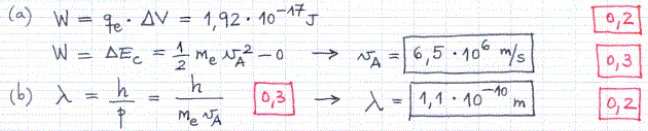 (a) W = qₑ · ΔV = 1,92 · 10⁻¹⁷ J 0,2
W = ΔE꜀ = 1/2 mₑ v_A² − 0 → v_A = 6,5 · 10⁶ m/s 0,3
(b) λ = h/p = h/(mₑ v_A) 0,3 → λ = 1,1 · 10⁻¹⁰ m 0,2